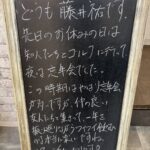 どうも藤井祐です。
先日のお休みの日は
知人たちとゴルフに行って
夜は忘年会でした。
この時期はやはり忘年会
が多いですが、仲の良い
友人たちと集まって一年を
振り返りながらワイワイ
が本当に楽しいですね。